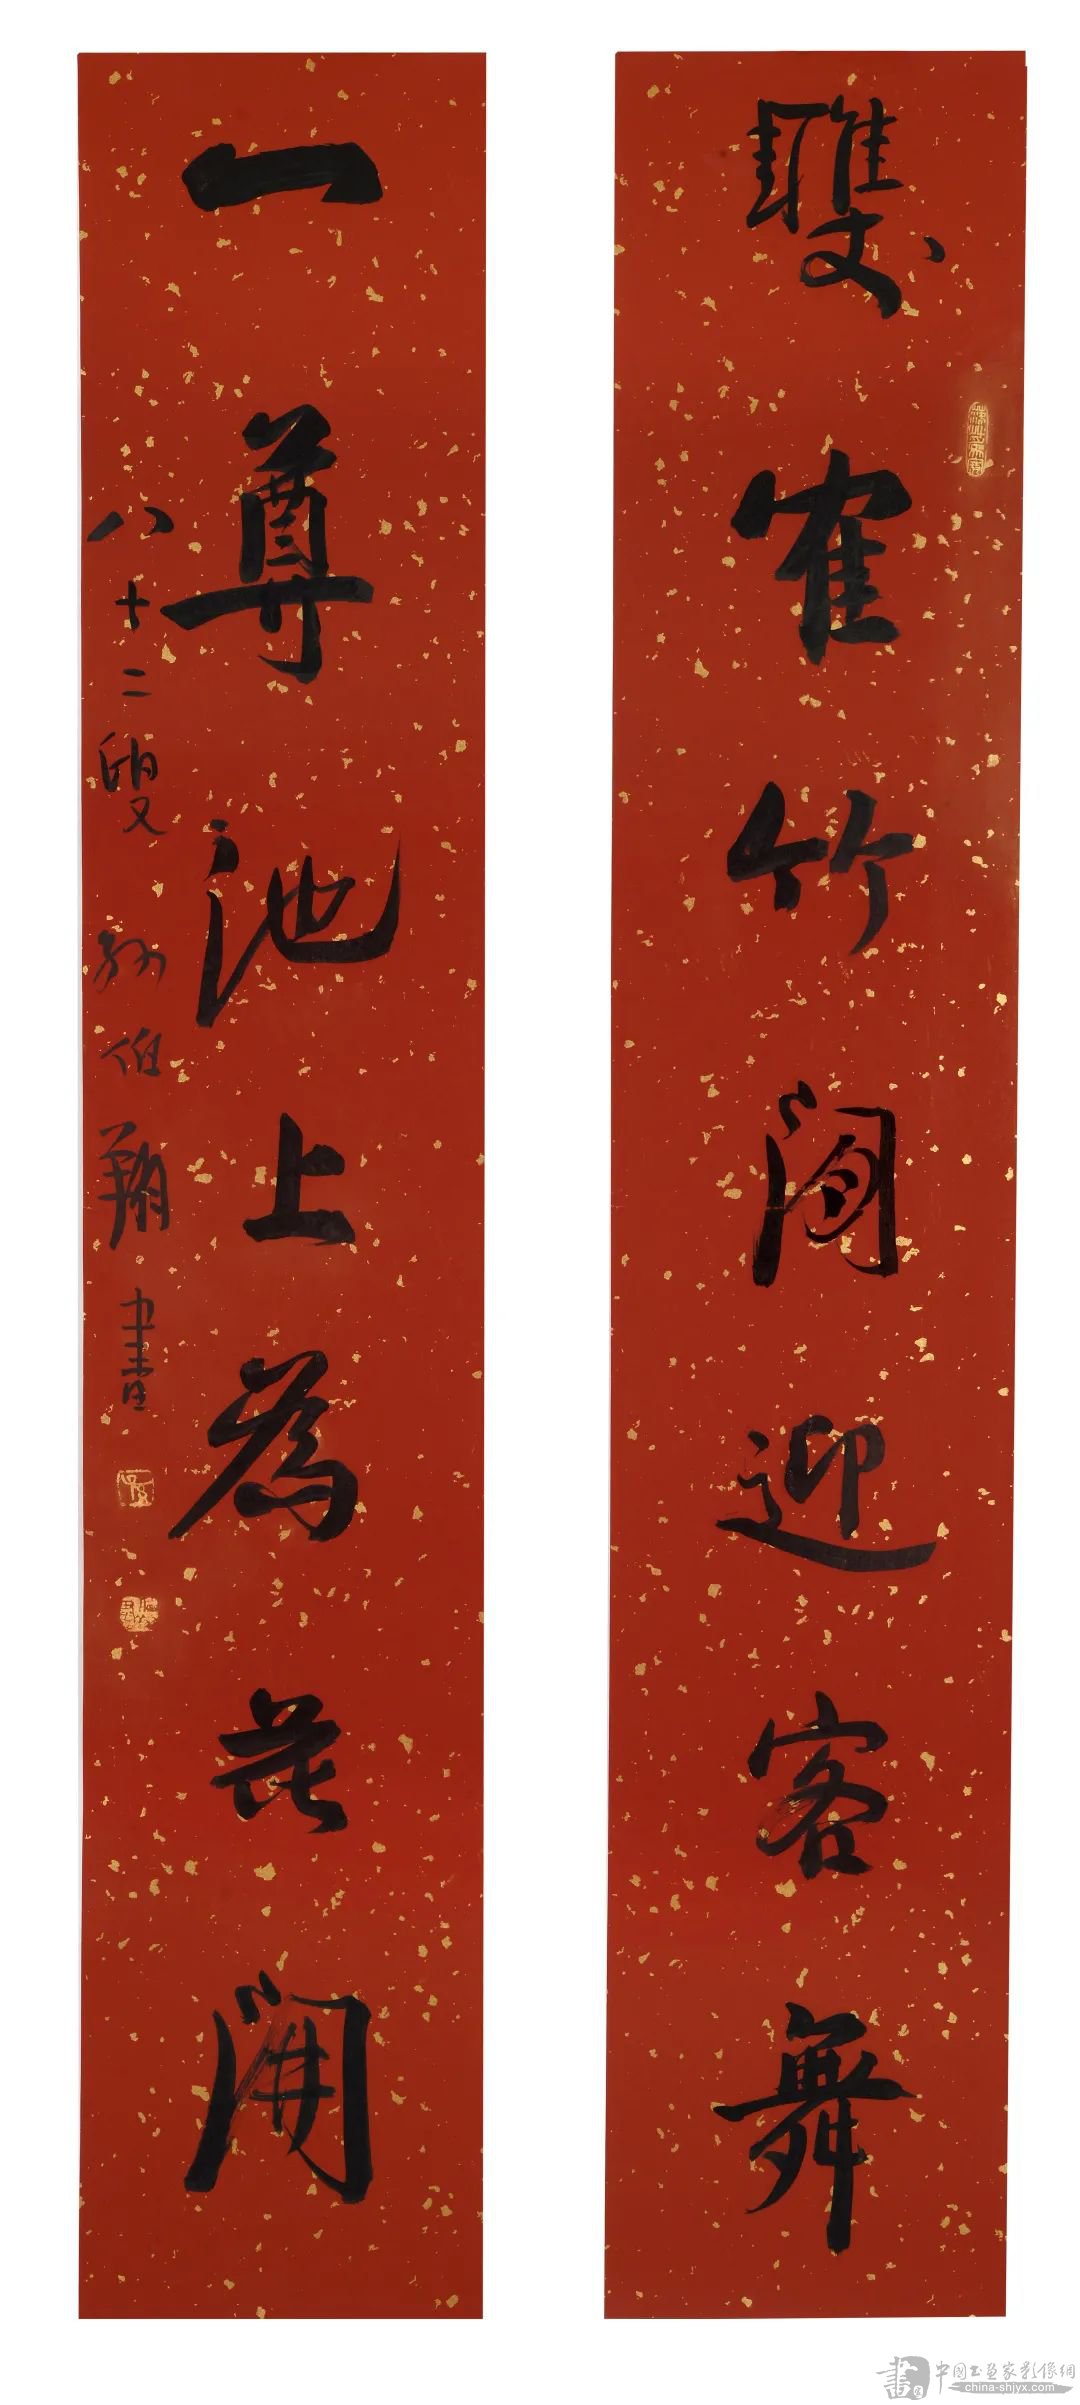 雙隺竹間迎客舞
一尊池上為花開
八十二叟孫伯翔書
中国书画家影像網
china-shjyx.com